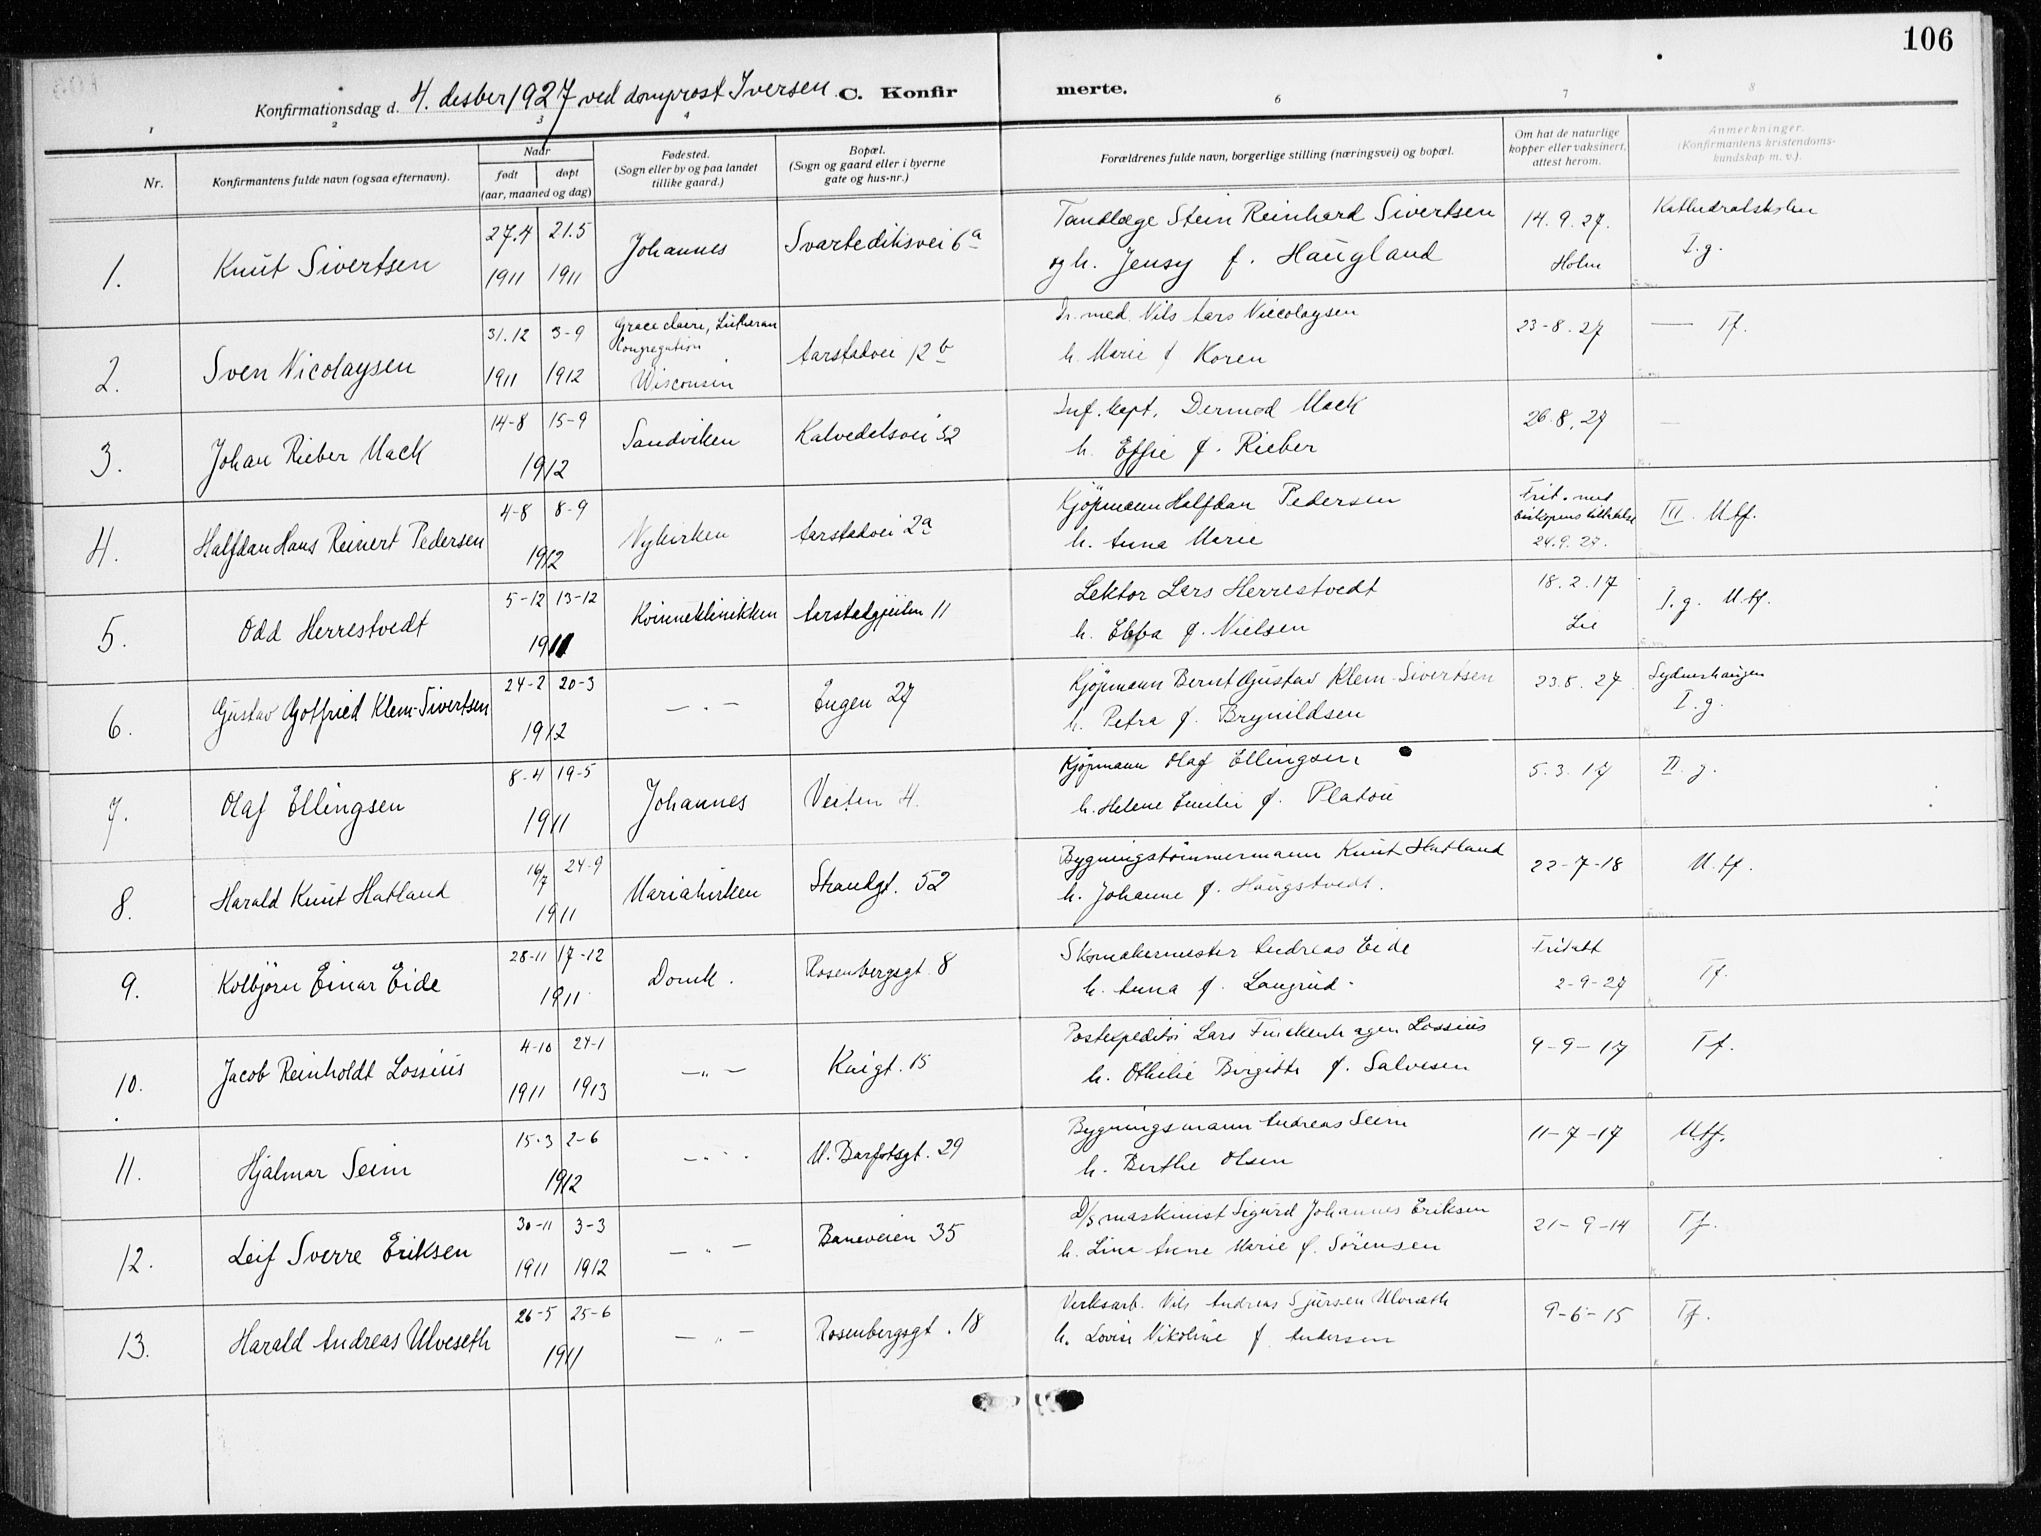 106
Konfirmationsdag d. 4. desber 1927 ved domprost Iversen C. Konfirmerte.
1 2 3 4 6 7 8
Nr.
Konfirmantens fulde navn (ogsaa efternavn).
Naar
født døpt
(aar, maaned og dag)
Fødested.
(Sogn eller by og paa landet
tillike gaard.)
Bopæl.
(Sogn og gaard eller i byerne
gate og hus-nr.)
Forældrenes fulde navn, borgerlige stilling (næringsvei) og bopæl.
Om hat de naturlige
kopper eller vaksinert,
attest herom.
Anmerkninger.
(Konfirmantens kristendoms-
kundskap m. v.).
1. Knut Sivertsen 27.4 1911 21.5 1911 Johannes Svartediksvei 6a
Tandlæge Stein Reinhard Sivertsen
og h. Jensy f. Haugland
14.9.27. Holm
Kathedralskolen
I.g.
2. Sven Nicolaysen 31.12 1911 3-9 1912
Grace claire, Lutheran
Congregation
Wisconsin
Aarstadvei 12b
Dr. med. Nils Aars Nicolaysen
h. Marie f Koren
23-8.27
— Tf.
3. Johan Rieber Mack 14-8 15-9 1912 Sandviken Kalvedalsvei 52
Inf. kapt. Dermod Mack
h. Effie f. Rieber
26.8.27
—
4. Halfdan Hans Reinert Pedersen 4-8 8-9 1912 Nykirken Aarstadvei 2a
Kjøpmann Halfdan Pedersen
h. Anna Marie
Frit. med
biskopens tillatelse
24.9.27.
III. Utf.
5. Odd Herrestvedt 5-12 13-12 1911 Kvinneklinikken Aarstadgeilen 11
Lektor Lars Herrestvedt
h. Ebba f. Nielsen
18.2.17
Lie
I.g. Utf.
6. Gustav Gotfried Klem-Sivertsen 24-2 20-3 1912 — . — Engen 27
Kjøpmann Bernt Gustav Klem-Sivertsen
h. Petra f. Brynildsen
23.8.27
Sydneshaugen
I.g.
7. Olaf Ellingsen 8-4 19-5 1911 Johannes Veiten 4.
Kjøpmann Olaf Ellingsen
h. Helene Emilie f. Platou
5.3.17
II.g.
8. Harald Knut Hatland 16/7 24-9 1911 Mariakirken Strandgt. 52
Bygningstømmermann Knut Hatland
h. Johanne f. Haugstvedt.
22-7-18
Utf.
9. Kolbjörn Einar Eide 28-11 17-12 1911 Domk. Rosenbergsgt. 8
Skomakermester Andreas Eide
h. Anna f. Langrud.
Fritatt
2-9-27
Tf.
10. Jacob Reinholdt Lossius 4-10 1911 24-1 1913 — " — Kaigt. 15
Postexpeditör Lars Finckenhagen Lossius
h. Othilie Birgitte f. Salvesen
9-9-17
Tf.
11. Hjalmar Seim 15.3 2-6 1912 — " . N. Barfotsgt. 29
Bygningsmann Andreas Seim
h. Berthe Olsen
11-7-17
Utf.
12. Leif Sverre Eriksen 30-11 1911 3-3 1912 — " — Baneveien 35
D/s maskinist Sigurd Johannes Eriksen
h. Lina Anne Marie f. Sörensen
21-9-14
Tf.
13. Harald Andreas Ulveseth 26-5 25-6 1911 — " — Rosenbergsgt. 18
Verksarb. Nils Andreas Sjursen Ulveseth
h. Lovise Nikoline f Andersen
9-6-15
Tf.